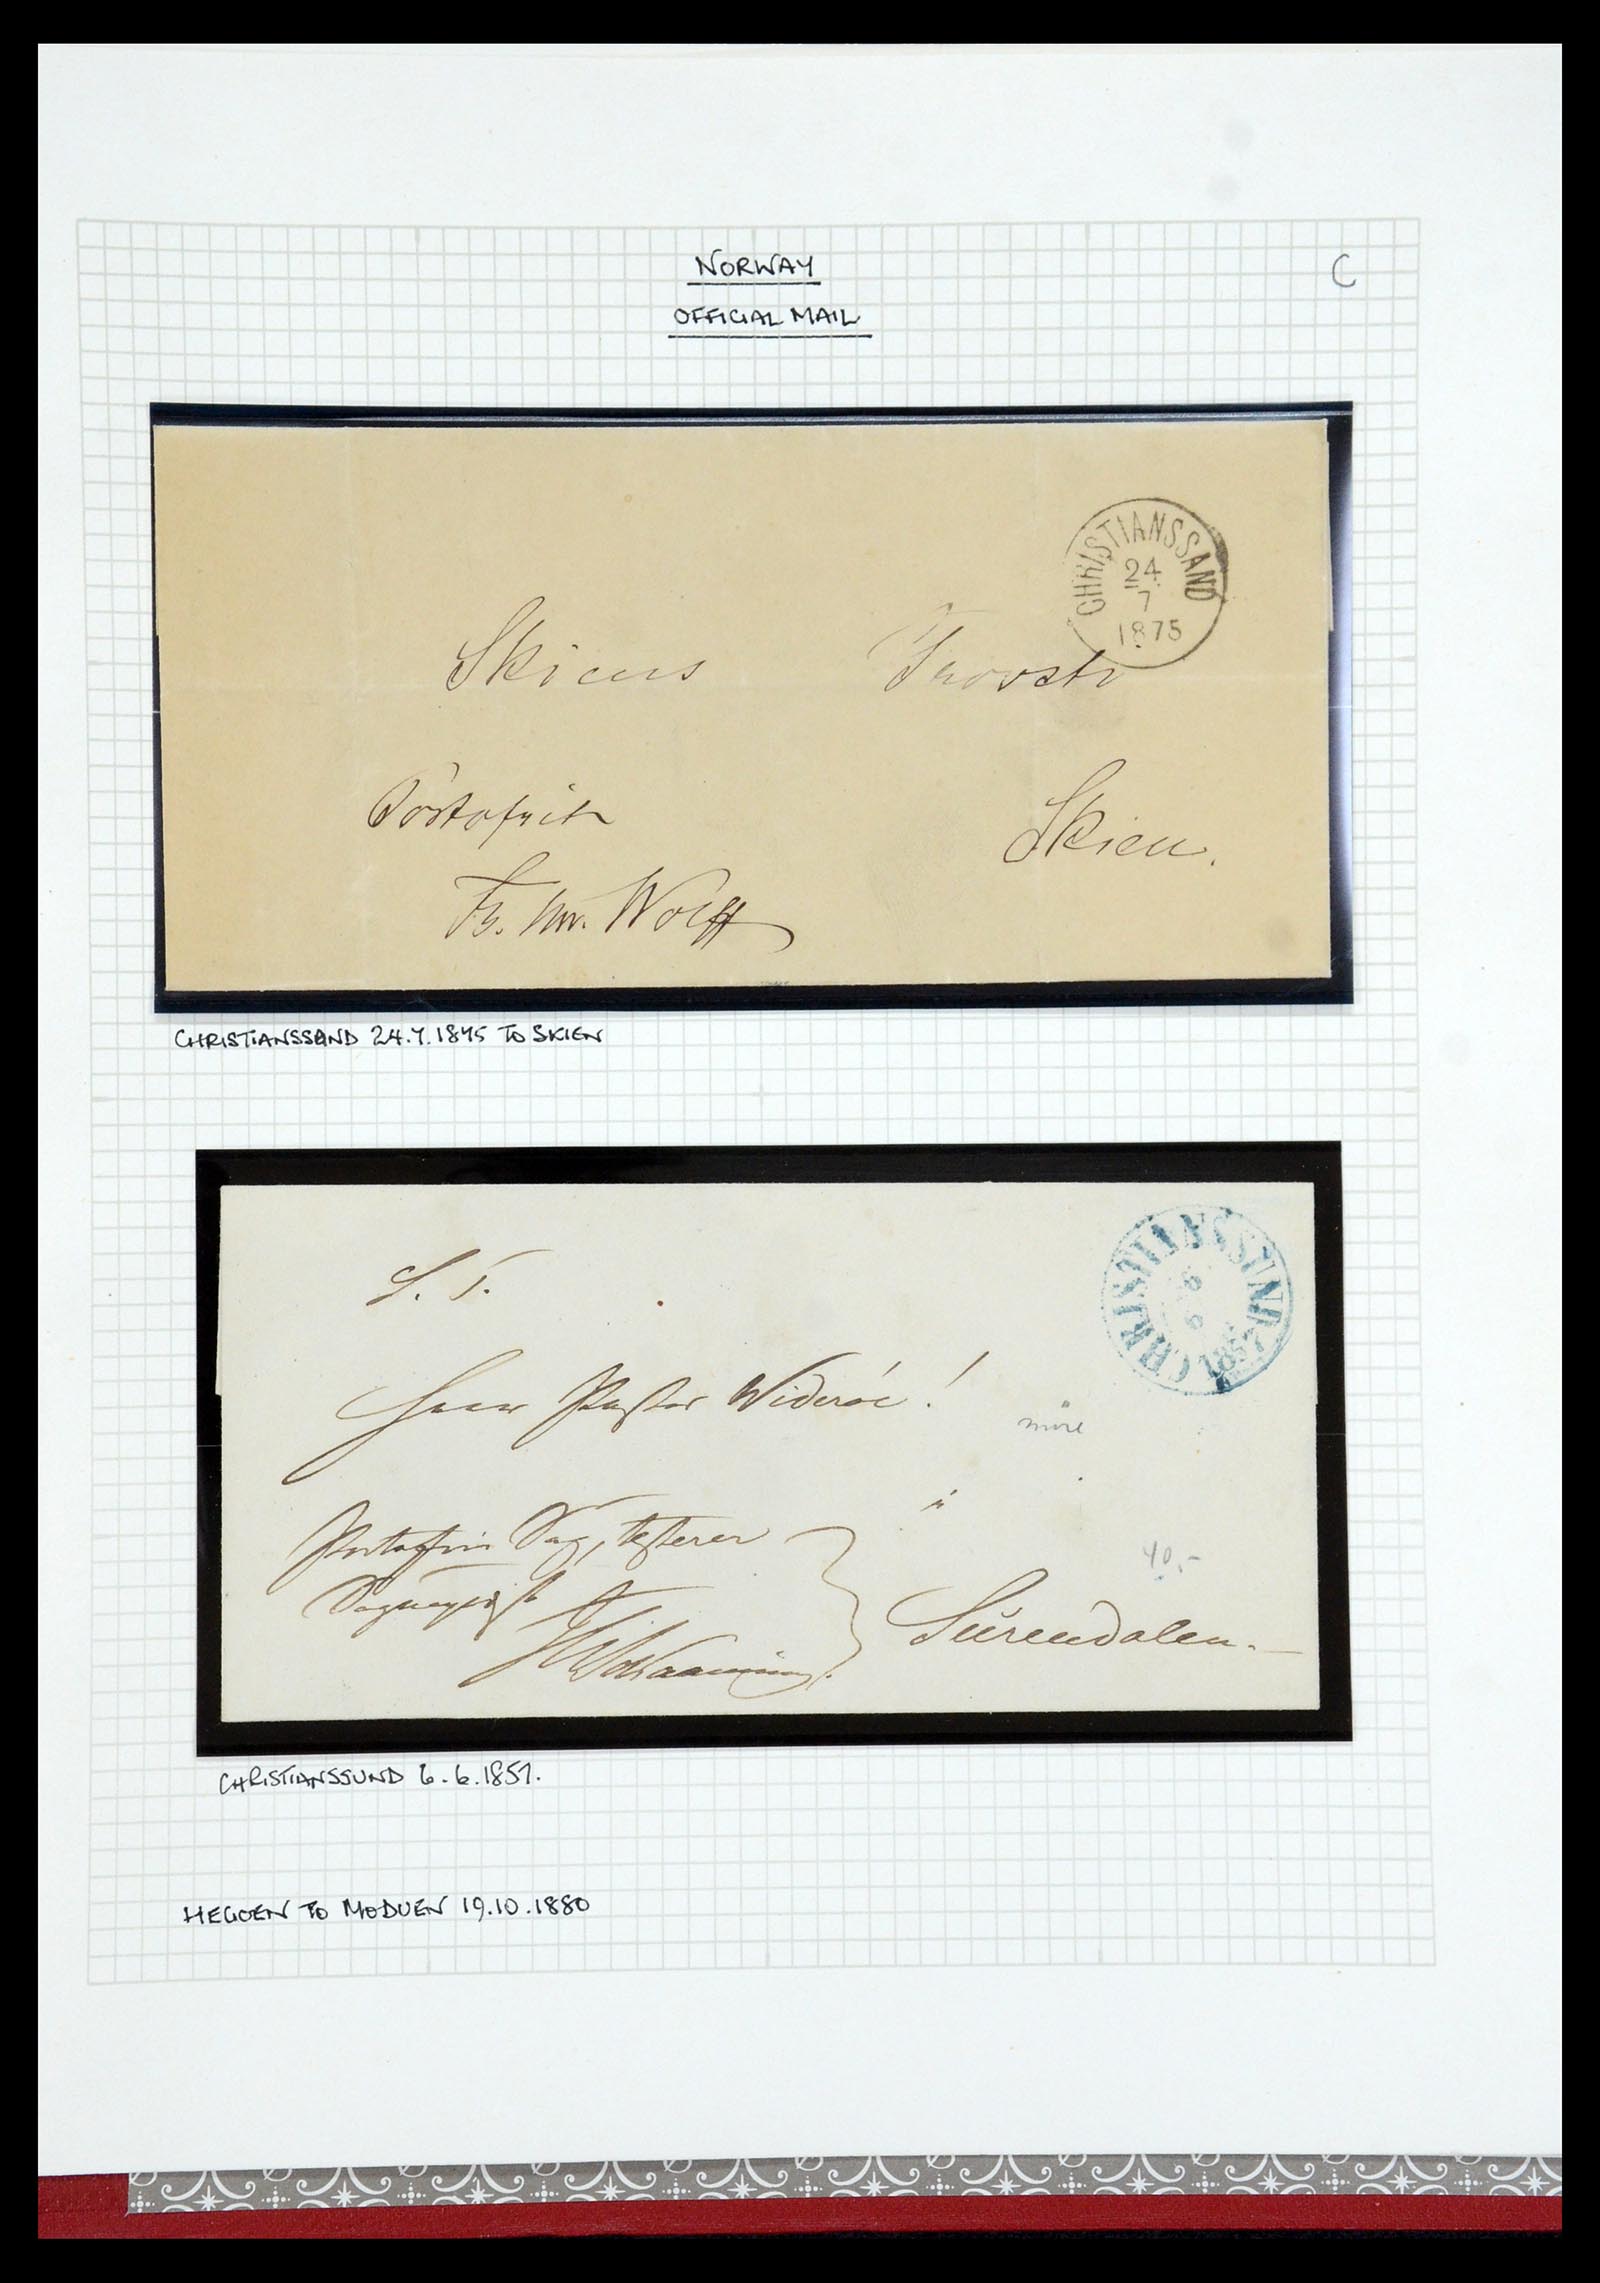 NORWAY
C
OFFICIAL MAIL
CHRISTIANSSAND
24
7
1875
Skiens
Skien.
Wolff
CHRISTIANSSAND 24.7.1875 TO SKIEN
CHRISTIANSSUND
6
6
1857
S. T.
Herr Pastor Widerøe!
möre
i
40,-
Sürendalen.
CHRISTIANSSUND 6.6.1857.
HEGGEN TO MODUEN 19.10.1880